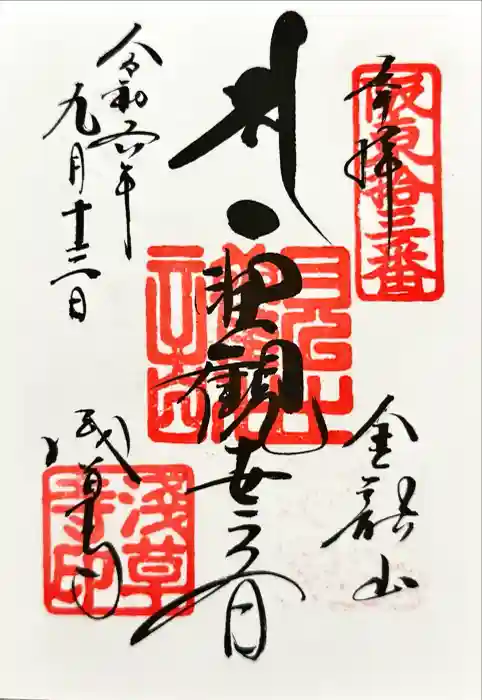 奉拝
坂東拾三番
聖観世音
金龍山
令和六年
九月十三日
浅草寺
淺草寺印